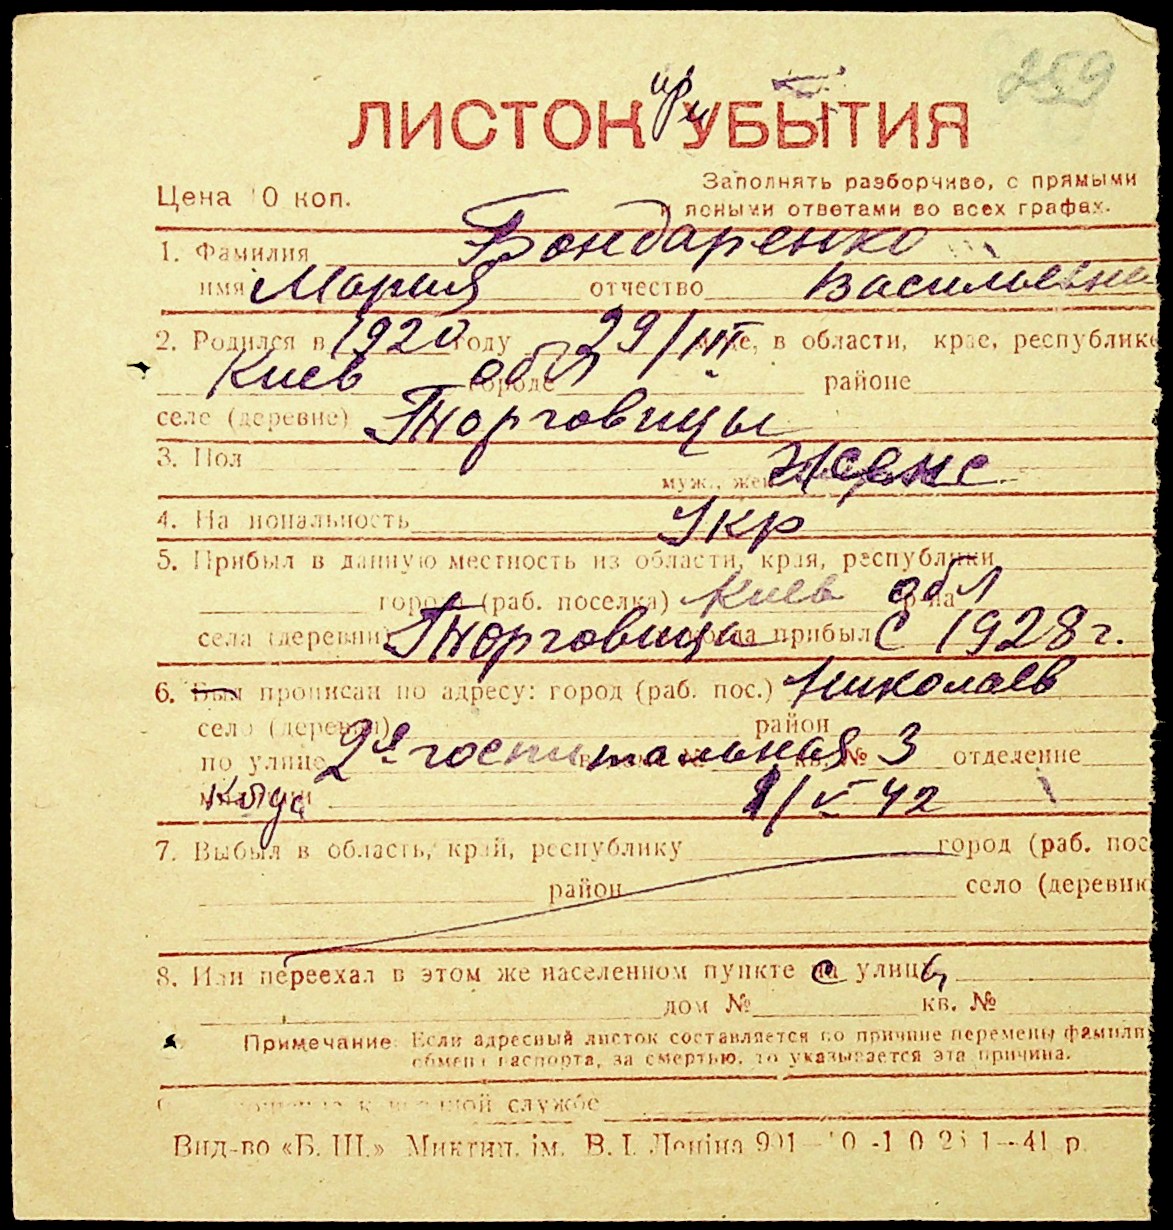 259
ЛИСТОК при УБЫТИЯ
Цена 10 коп.
Заполнять разборчиво, с прямыми
и ясными ответами во всех графах.
1. Фамилия Бондаренко
имя Мария отчество Васильевна
2. Родился в 1920 году 29/III м-це, в области, крае, республике
Киев обл городе районе
селе (деревне) Торговицы
3. Пол
муж., жен. Женс
4. Национальность Укр
5. Прибыл в данную местность из области, края, республики
города (раб. поселка) Киев обл р-на
села (деревни) Торговица когда прибыл С 1928 г.
6. Был прописан по адресу: город (раб. пос.) Николаев
село (деревни) район
по улице 2я госпитальная кв. № 3 отделение
милиции Когда 1/V 42
7. Выбыл в область, край, республику город (раб. пос
район село (деревню
8. Или переехал в этом же населенном пункте с улицы
дом № кв. №
Примечание: Если адресный листок составляется по причине перемены фамилии
обмена паспорта, за смертью, то указывается эта причина.
службе
Вид-во «Б. Ш.» Миктип. ім. В. І. Леніна 41 р.